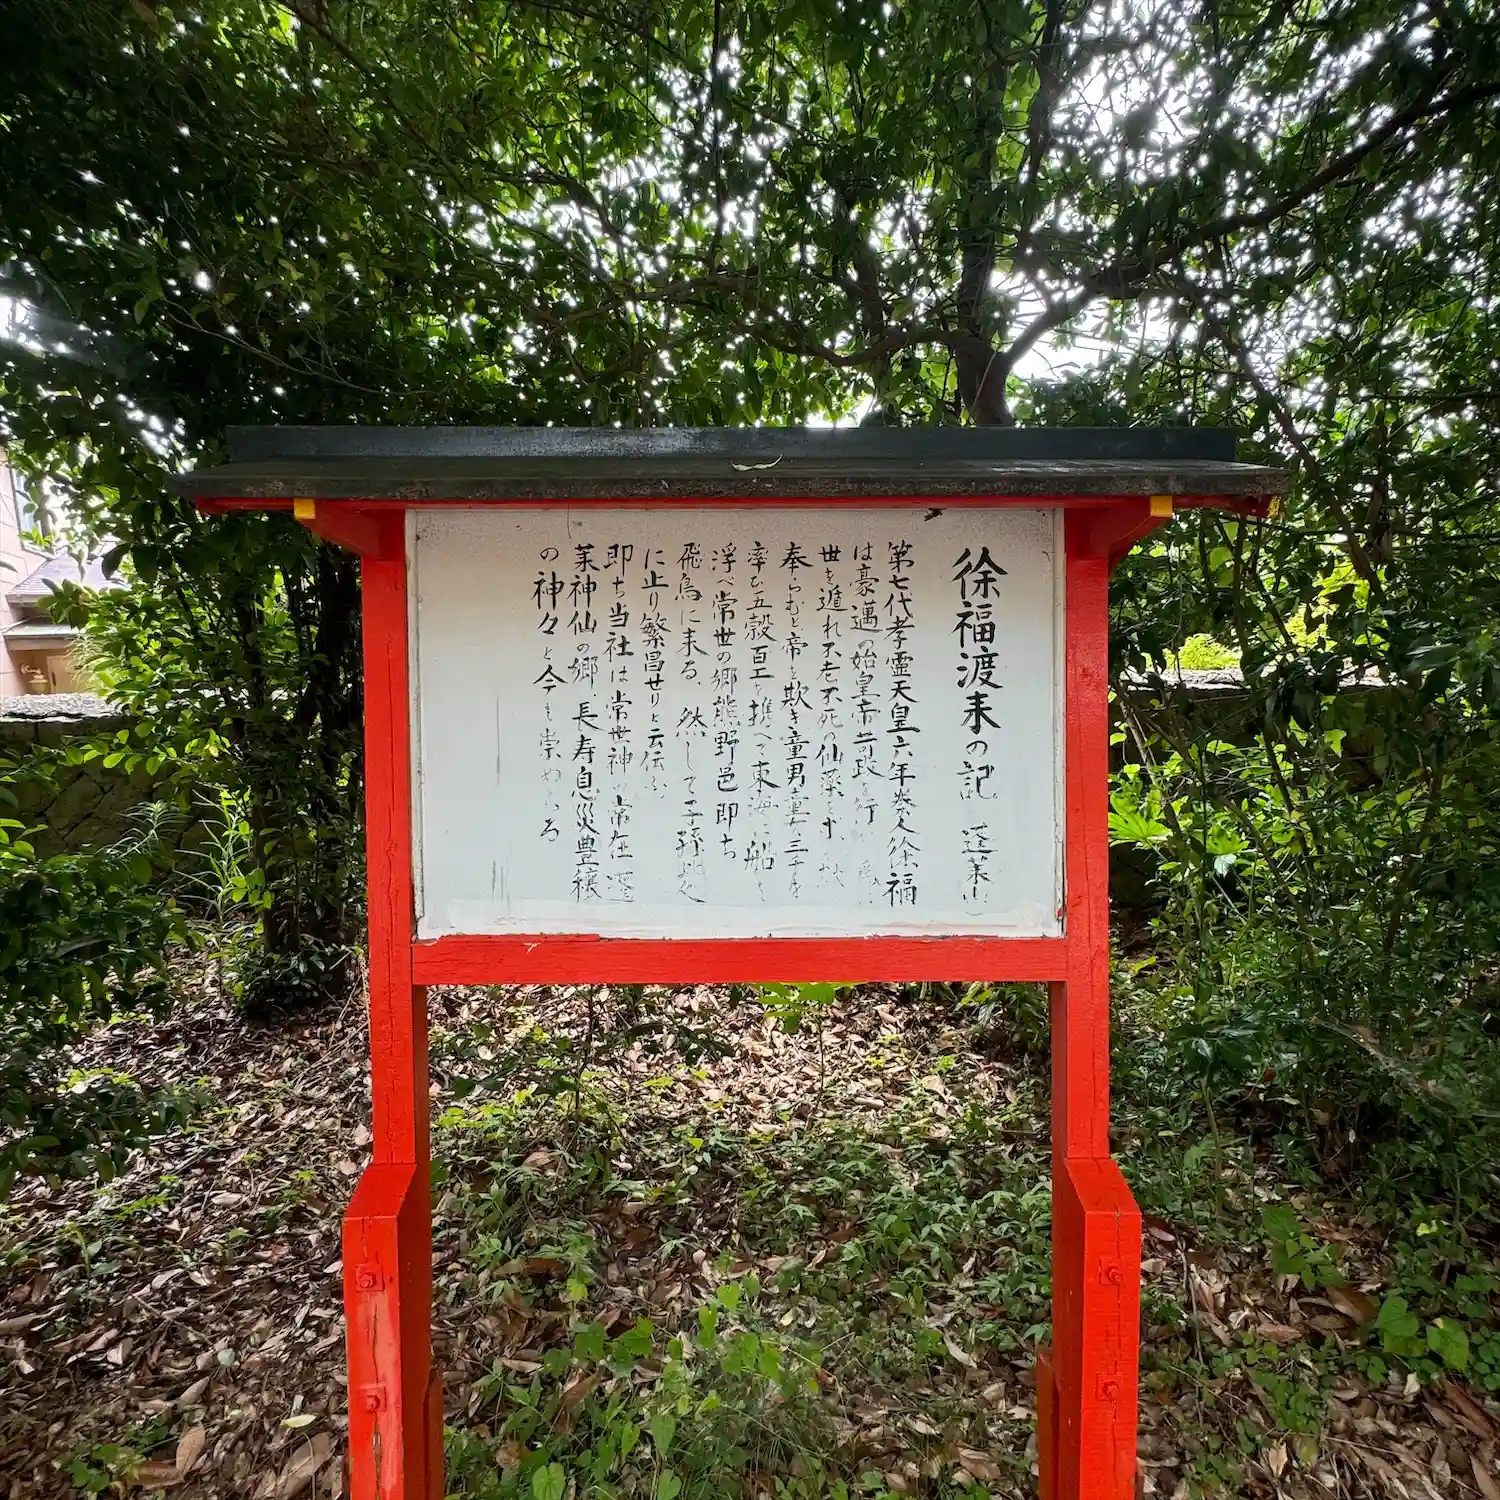 徐福渡来の記 蓬莱山
第七代孝霊天皇六年秦人徐福
は豪邁の始皇帝苛政を行
世を遁れ不老不死の仙薬を求
奉らむと帝を欺き童男童女三千を
率ひ五穀百工を携へて東海に船を
浮べ常世の郷熊野邑即ち
飛鳥に来る、然して子孫
に止り繁昌せりと云伝ふ
即ち当社は常世神の常在
莱神仙の郷、長寿息災豊穣
の神々と今も崇めらる